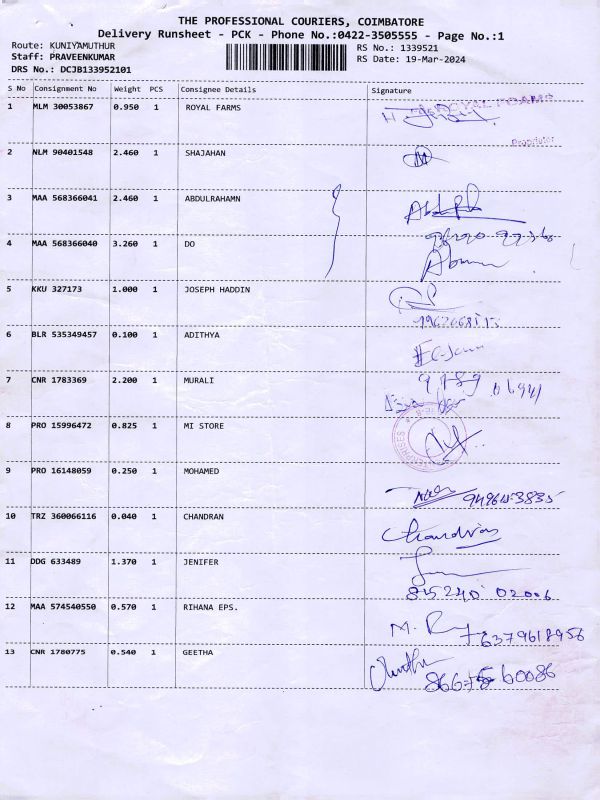 THE PROFESSIONAL COURIERS, COIMBATORE
Delivery Runsheet - PCK - Phone No.:0422-3505555 - Page No.:1
Route: KUNIYAMUTHUR RS No.: 1339521
Staff: PRAVEENKUMAR RS Date: 19-Mar-2024
DRS No.: DCJB133952101
S No Consignment No Weight PCS Consignee Details Signature
1 MLM 30053867 0.950 1 ROYAL FARMS
Proprietor
2 NLM 90401548 2.460 1 SHAJAHAN
3 MAA 568366041 2.460 1 ABDULRAHAMN
4 MAA 568366040 3.260 1 DO
5 KKU 327173 1.000 1 JOSEPH HADDIN
6 BLR 535349457 0.100 1 ADITHYA
7 CNR 1783369 2.200 1 MURALI
8 PRO 15996472 0.825 1 MI STORE
9 PRO 16148059 0.250 1 MOHAMED
10 TRZ 360066116 0.040 1 CHANDRAN
Chandran
11 DDG 633489 1.370 1 JENIFER
12 MAA 574540550 0.570 1 RIHANA EPS.
6379618956
13 CNR 1780775 0.540 1 GEETHA